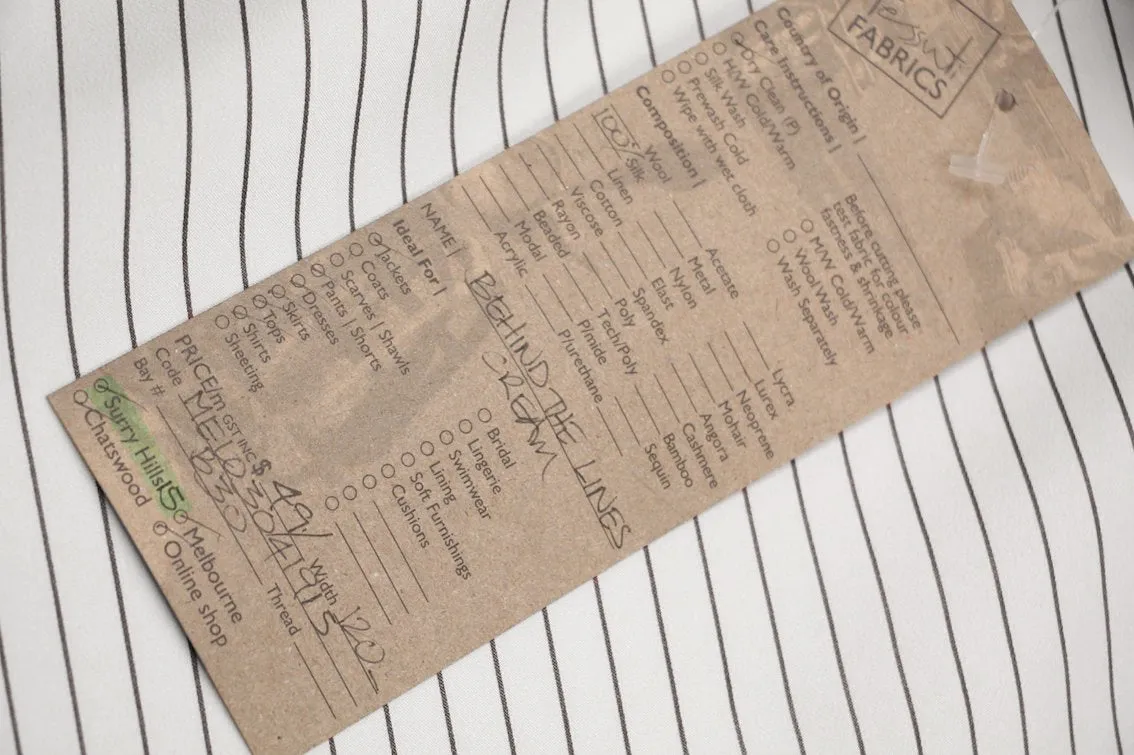 Tessuti
FABRICS
Country of Origin |
Care Instructions |
Dry Clean (P)
H/W Cold/Warm
Silk Wash
Prewash Cold
Wipe with wet cloth
Before cutting please
test fabric for colour
fastness & shrinkage
M/W Cold/Warm
Wool Wash
Wash Separately
Composition |
Wool
100% Silk
Linen
Cotton
Viscose
Rayon
Beaded
Modal
Acrylic
Acetate
Metal
Nylon
Elast
Spandex
Poly
Tech/Poly
P/mide
P/urethane
Lycra
Lurex
Neoprene
Mohair
Angora
Cashmere
Bamboo
Sequin
NAME | BEHIND THE LINES
CREAM
Ideal For |
Jackets
Coats
Scarves | Shawls
Pants | Shorts
Dresses
Skirts
Tops
Shirts
Sheeting
Bridal
Lingerie
Swimwear
Lining
Soft Furnishings
Cushions
PRICE/m GST INC $ 49/ Width 120-
Code
Bay #
Thread
Surry Hills 15
Melbourne
Chatswood
Online shop